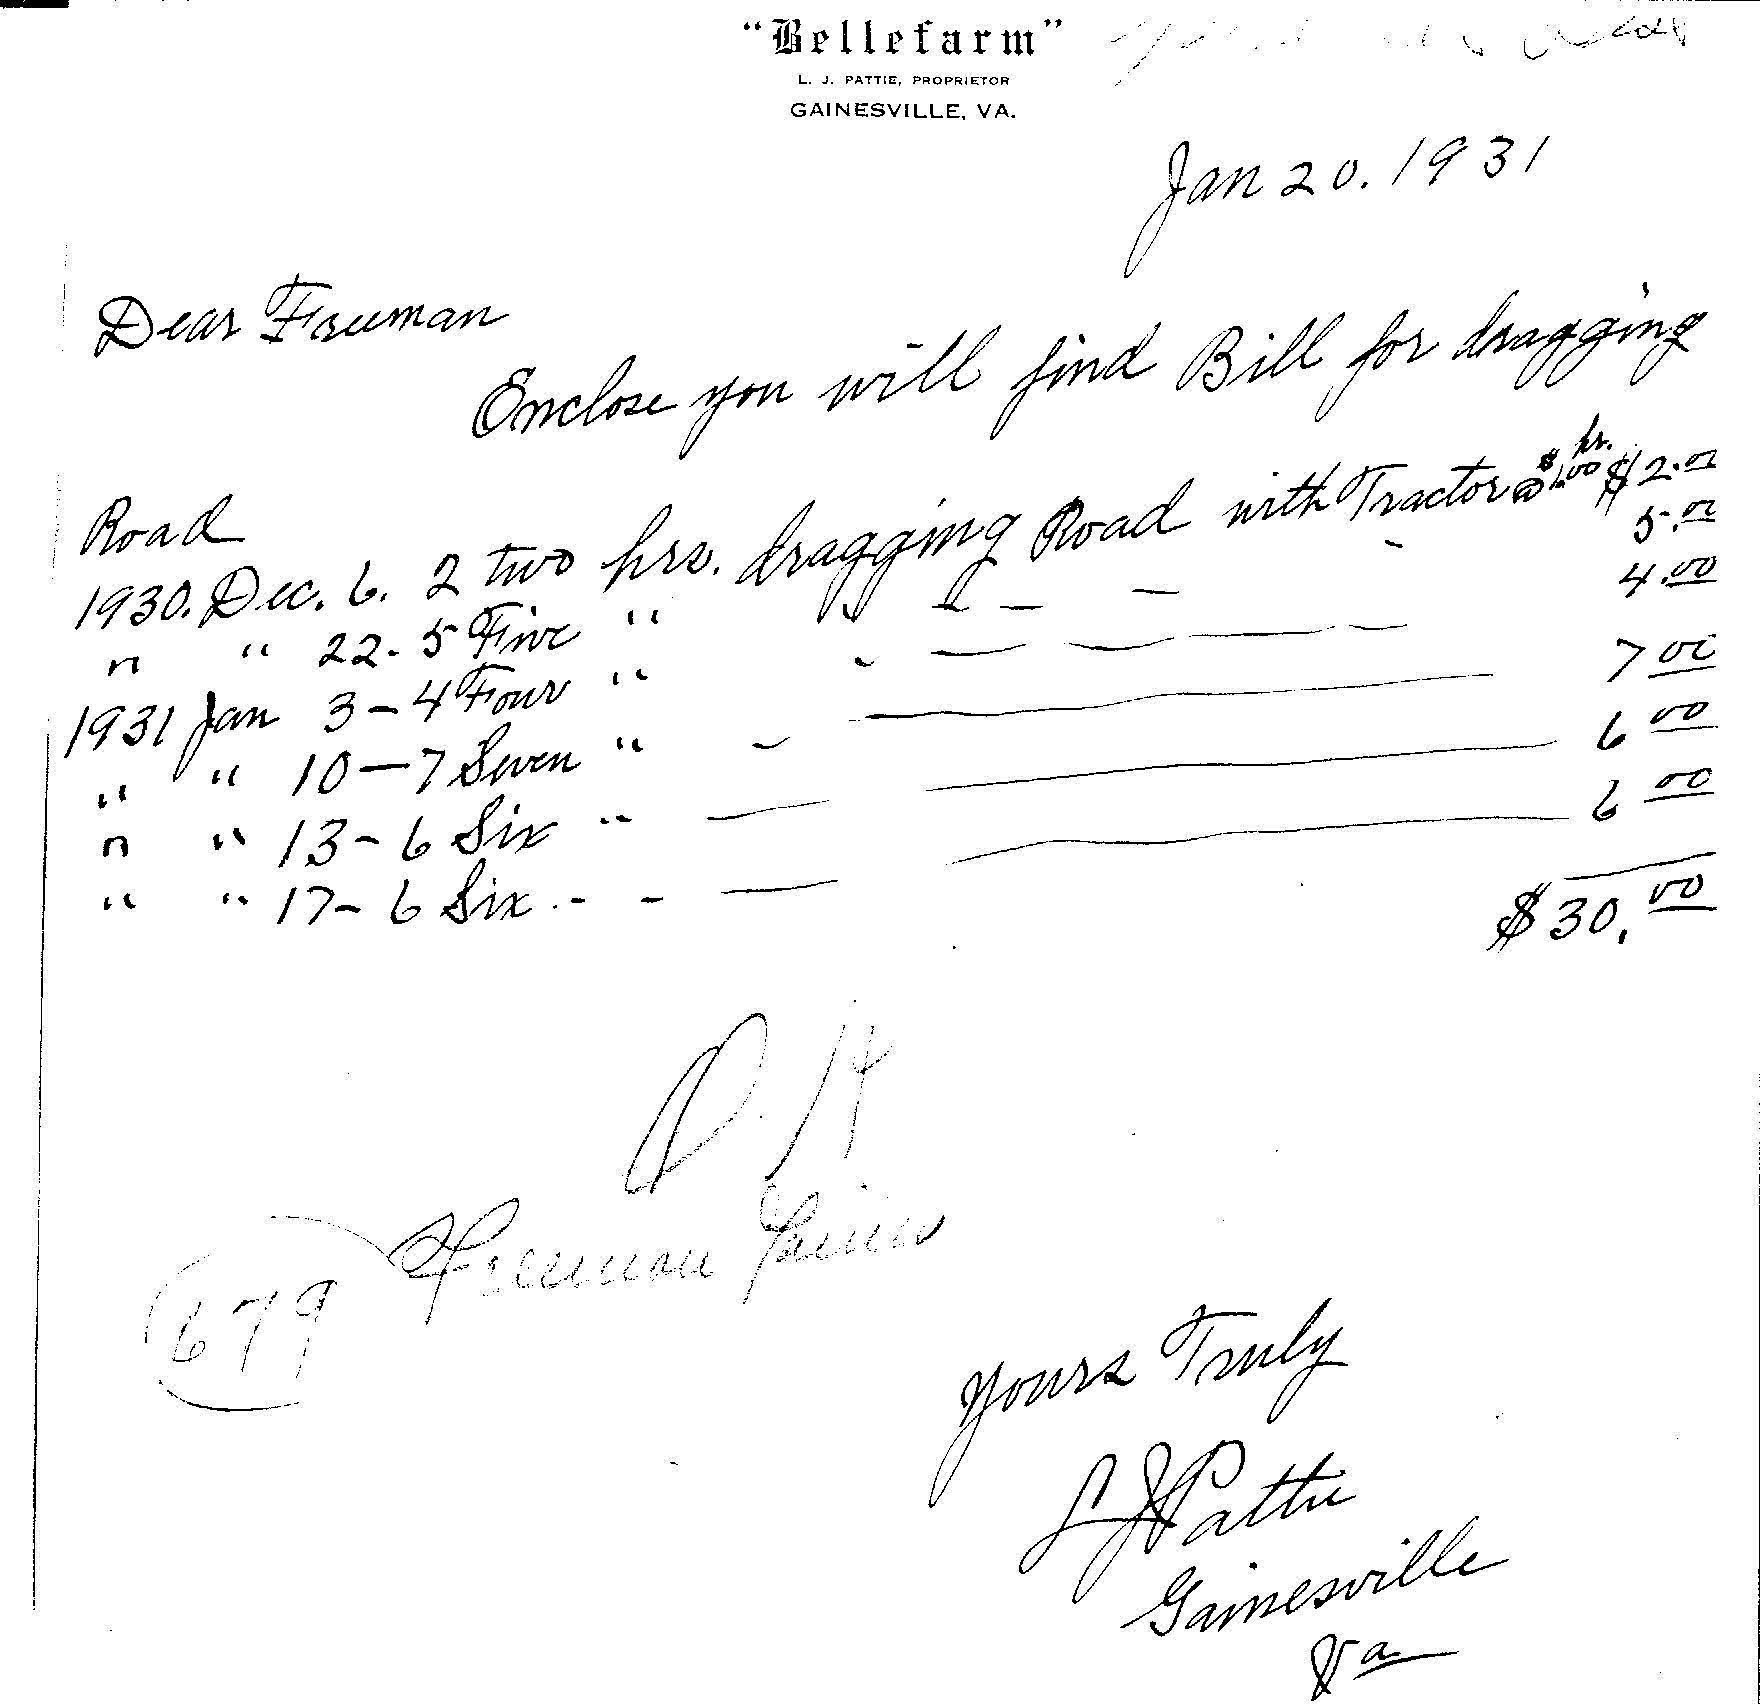 "Bellefarm"
L. J. PATTIE, PROPRIETOR
GAINESVILLE, VA.
Jan 20. 1931
Dear Freeman
Enclose you will find Bill for dragging
Road
1930. Dec. 6. 2 two hrs. dragging Road with Tractor @ $1.00 hr. $2.00
" " 22 - 5 Five " " - - - - 5.00
1931 Jan 3 - 4 Four " - 4.00
" " 10 - 7 Seven " - 7 00
" " 13 - 6 Six " - 6 00
" " 17 - 6 Six - - - 6 00
$30.00
Freeman Gaines
679
Yours Truly
L J Pattie
Gainesville
Va